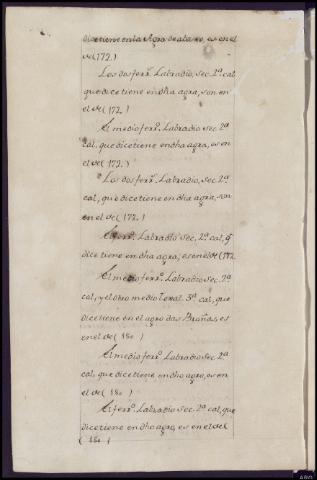 dice tiene en la Agra de alatorre, es en el
de (172.)
Los dos ferr.s Labradio, sec. 2ª cal.
que dice tiene en dha agra, son en
el de (172.)
El medio ferr.º Labradio sec. 2ª
cal. que dice tiene en dha agra, es en
el de (172.)
Los dos ferr.s Labradio, sec. 2ª
cal, que dice tiene en dha agra, son
en el de (172.)
El ferr.º Labradio sec. 2ª cal, q
dice tiene en dha agra, es en el de (172
El medio ferr.º Labradio sec. 2ª
cal, y el otro medio 3ª cal, que
dice tiene en el agro das Brañas, es
en el de (180.)
El medio ferr.º Labradio sec. 2ª
cal, que dice tiene en dho agro, es en
el de (180.)
El ferr.º Labradio sec. 2ª cal, que
dice tiene en dho agro, es en el de
(180.)